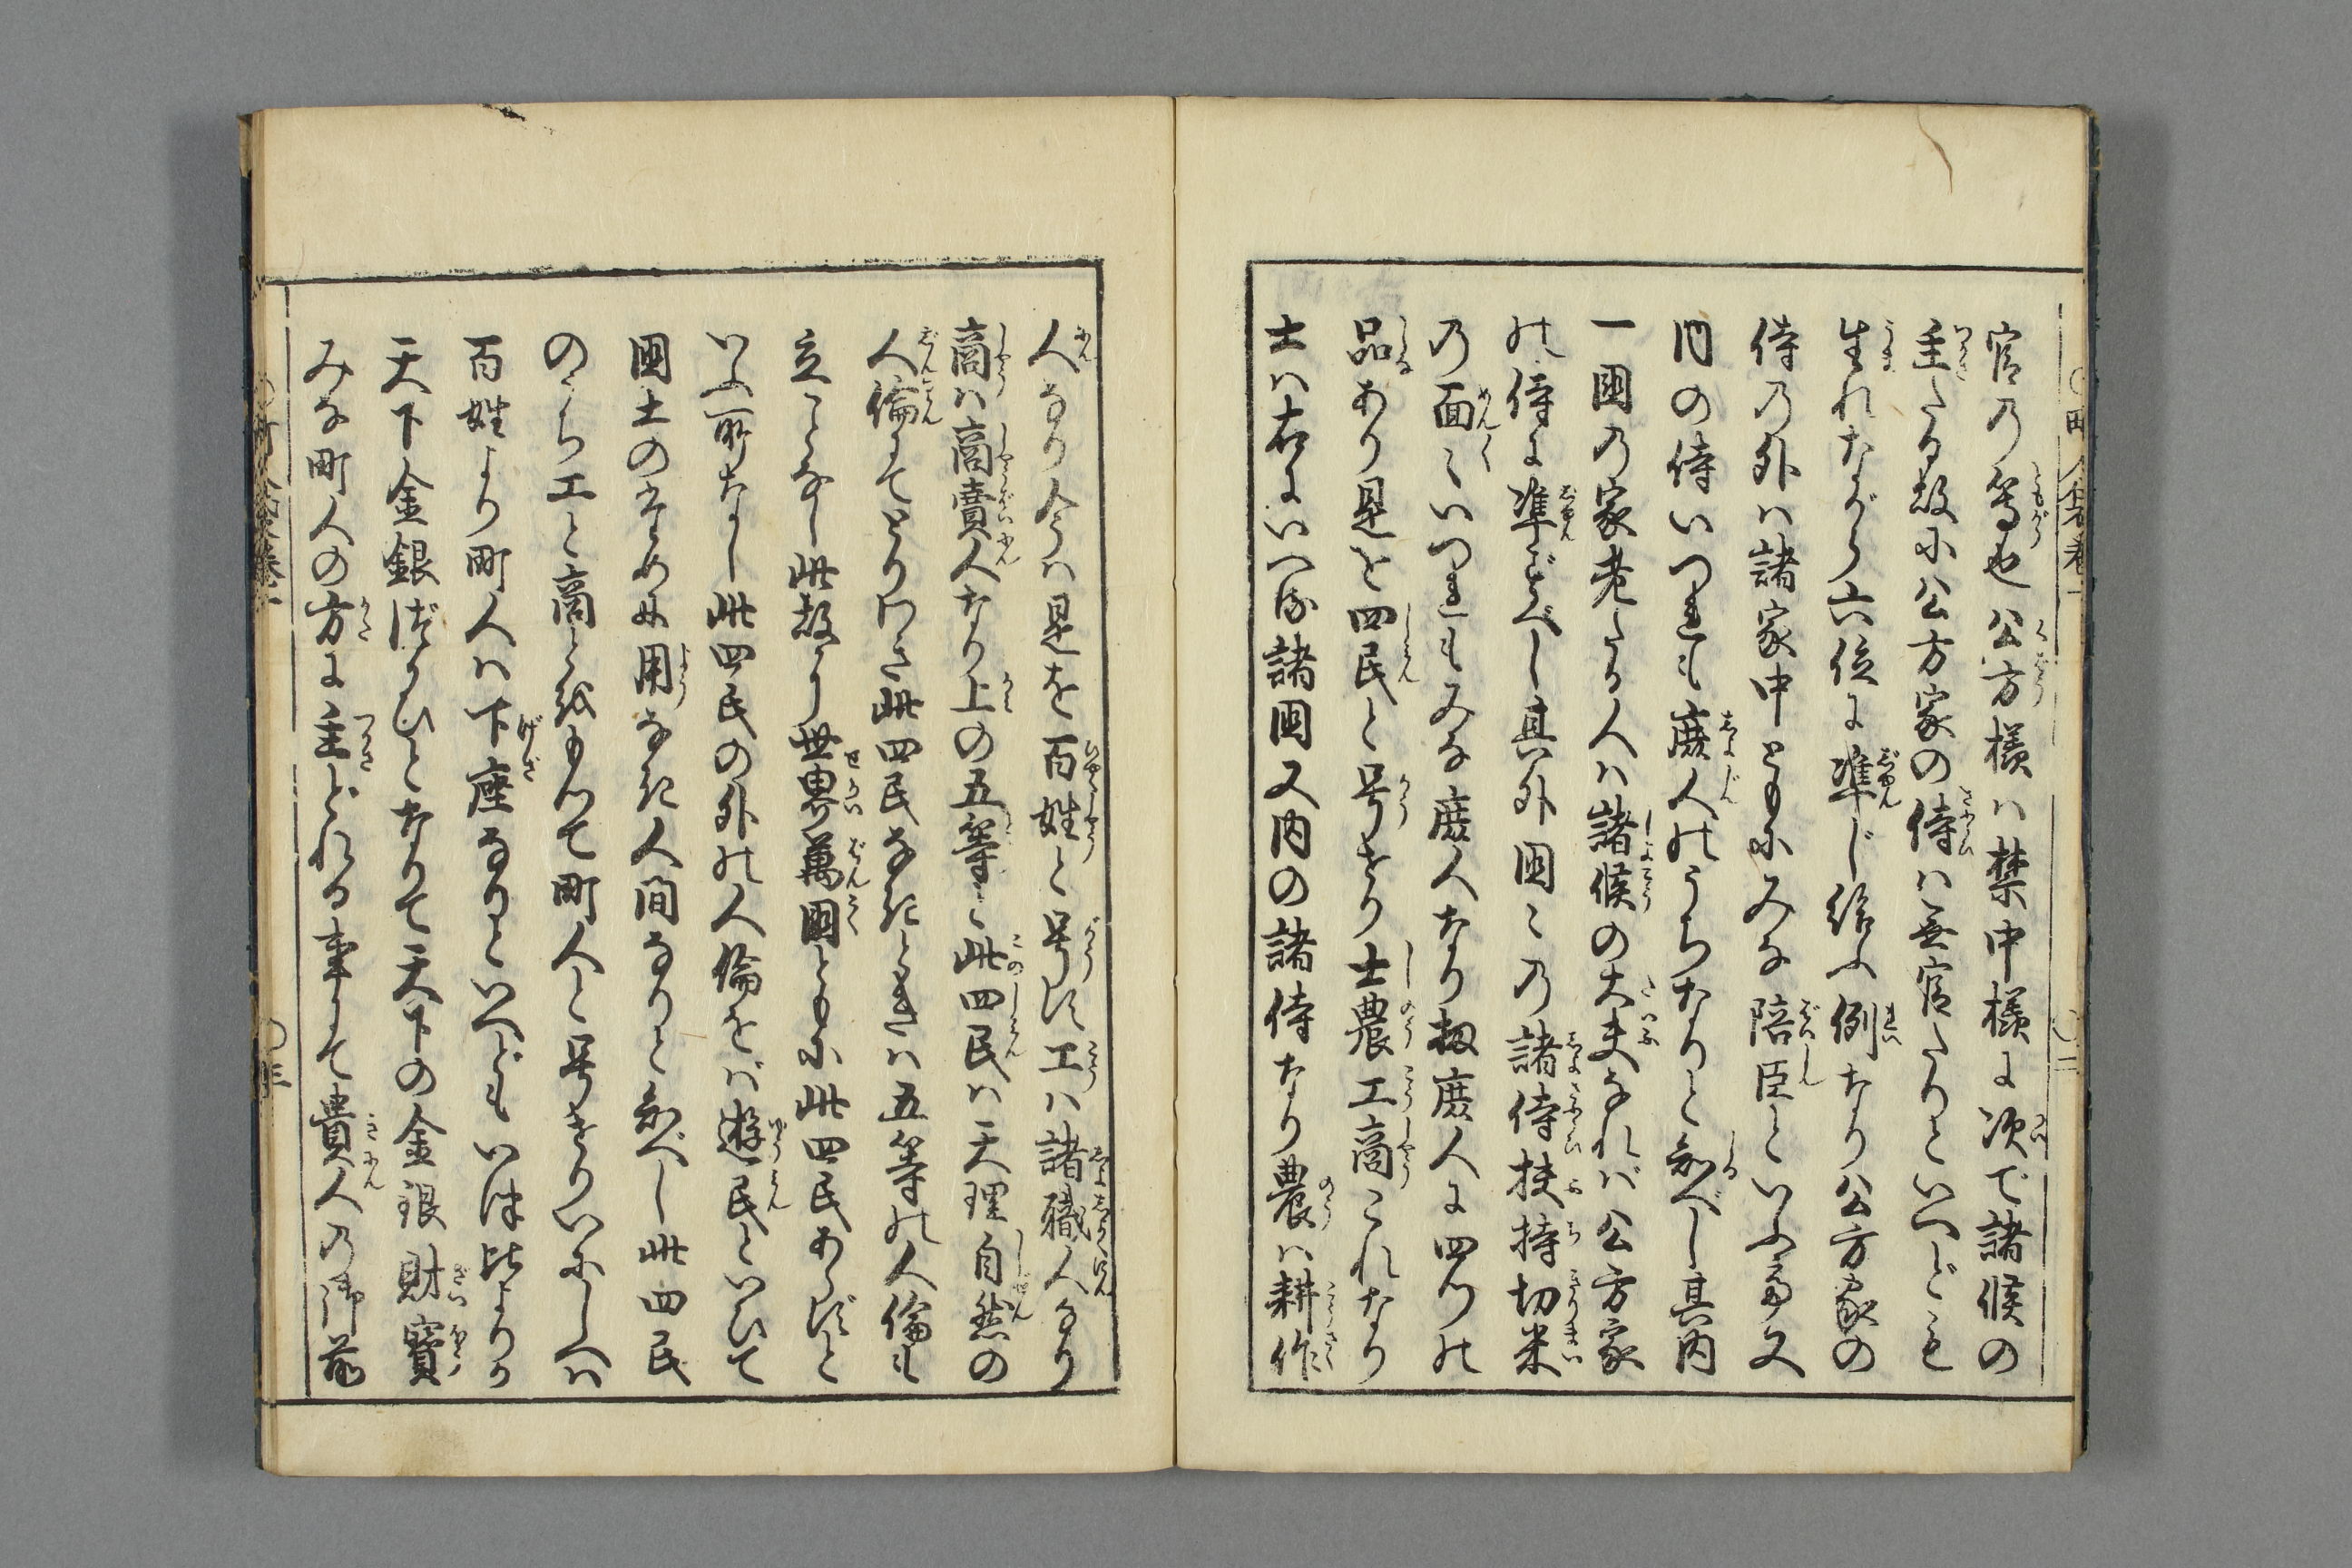 官の等也公方様ハ禁中様に次で諸候の
主たる故に公方家の侍ハ無官たりといへども
生れながら六位に準じ給ふ例なり公方家の
侍の外ハ諸家中ともにみな陪臣といふ又
内の侍いづれも庶人のうちなりと知べし其内
一国の家老たる人ハ諸候の大夫なれバ公方家
の侍に準ずべし其外国々の諸侍扶持切米
の面々いづれもみな庶人なり扨庶人に四つの
品あり是を四民と号せり士農工商これなり
士ハ右にいへる諸国又内の諸侍なり農ハ耕作
人なり今ハ是を百姓と号す工ハ諸職人なり
商ハ商賣人なり上の五等と此四民ハ天理自然の
人倫にてとりわき此四民なきときハ五等の人倫も
立ことなし此故に世界萬国ともに此四民あらずと
いふ所なし此四民の外の人倫をバ遊民といひて
国土のために用なき人間なりと知べし此四民
のうち工と商とをもつて町人と号せりいにしへハ
百姓より町人ハ下座なりといへどもいつ比よりか
天下金銀づかひとなりて天下の金銀財寳
みな町人の方に主どれる事にて貴人の御前